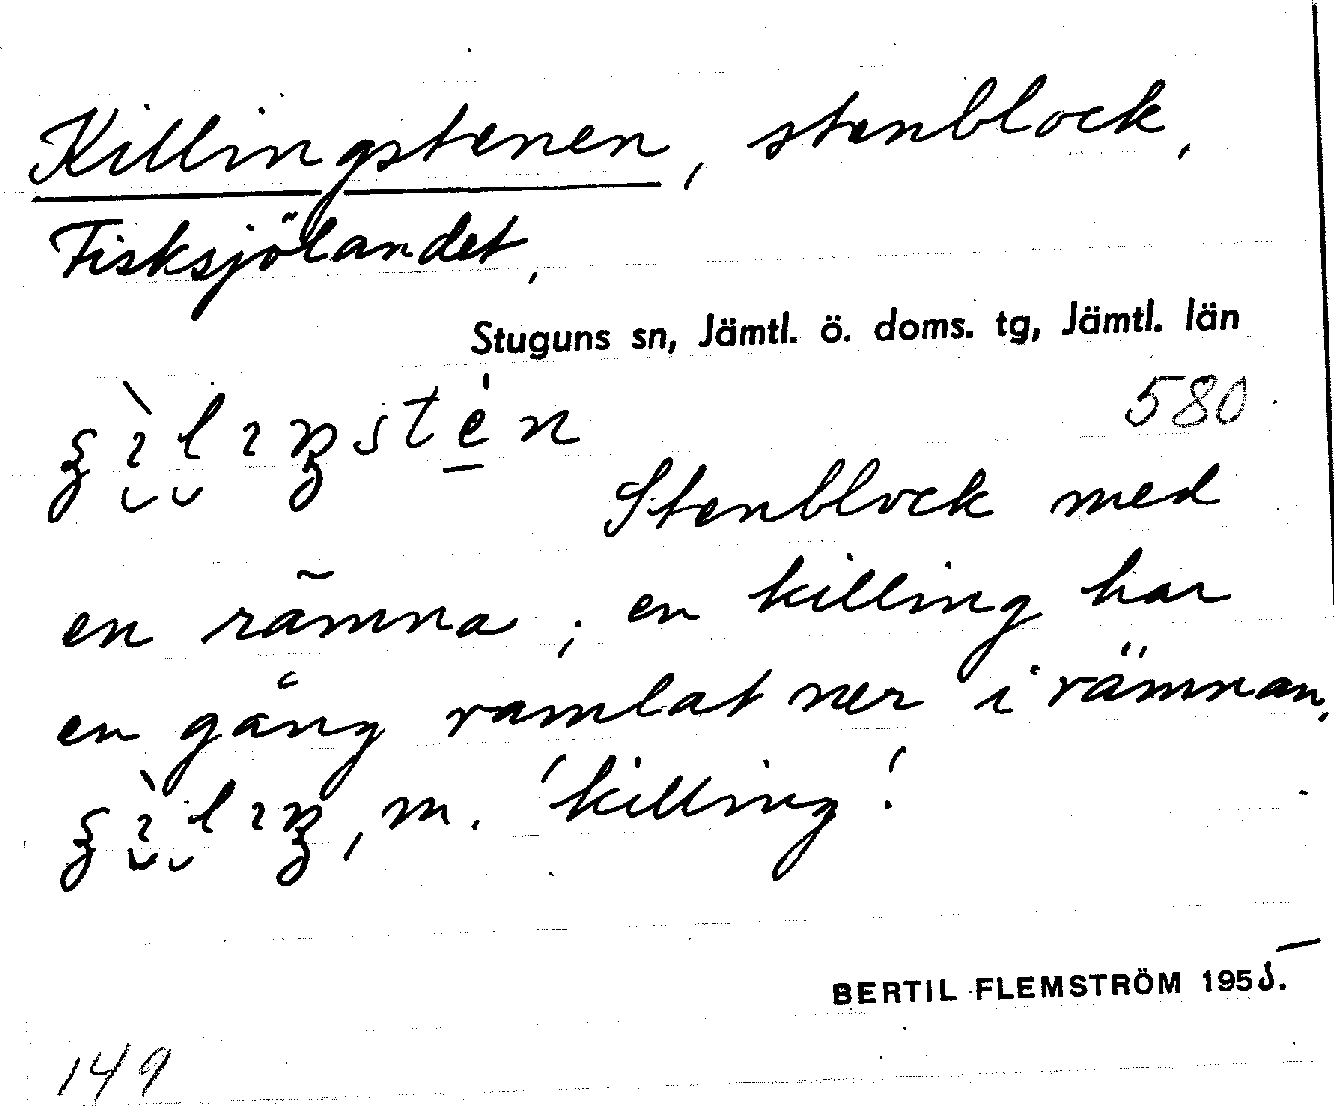 Killingstenen, stenblock,
Fisksjölandet,
Stuguns sn, Jämtl. ö. doms. tg, Jämtl. län
580
Stenblock med
en rämna; en killing har
en gång ramlat ner i rämnan.
m. 'killing'.
BERTIL FLEMSTRÖM 1955.
149